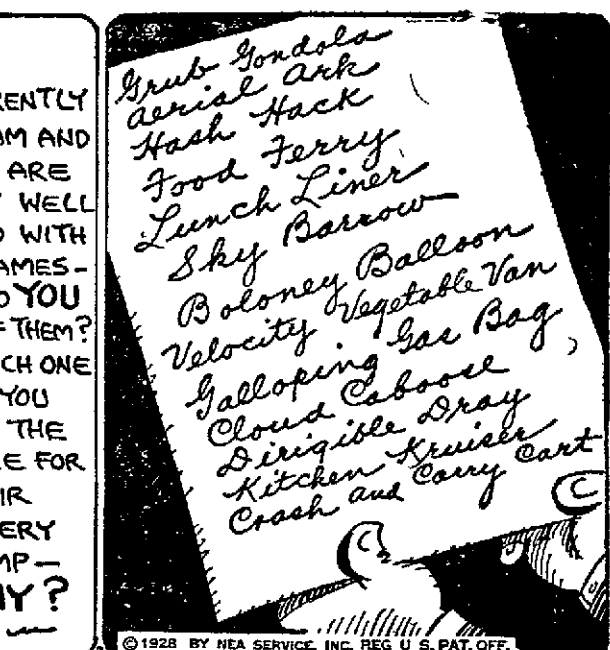 RENTLY
AM AND
ARE
WELL
WITH
AMES-
YOU
THEM?
CH ONE
YOU
THE
E FOR
IR
ERY
MP—
NY?
Grub Gondola
Aerial Ark
Hash Hack
Food Ferry
Lunch Liner
Sky Barrow
Boloney Balloon
Velocity Vegetable Van
Galloping Gas Bag
Cloud Caboose
Dirigible Dray
Kitchen Kruiser
Crash and Carry Cart
©1928 BY NEA SERVICE, INC. REG. U. S. PAT. OFF.